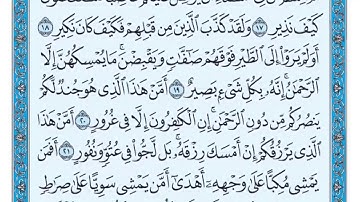 كَيْفَ نَذِيرِ ١٧ وَلَقَدْ كَذَّبَ ٱلَّذِينَ مِن قَبْلِهِمْ فَكَيْفَ كَانَ نَكِيرِ ١٨
أَوَلَمْ يَرَوْا۟ إِلَى ٱلطَّيْرِ فَوْقَهُمْ صَٰٓفَّٰتٍ وَيَقْبِضْنَ ۚ مَا يُمْسِكُهُنَّ إِلَّا
ٱلرَّحْمَٰنُ ۚ إِنَّهُۥ بِكُلِّ شَىْءٍۭ بَصِيرٌ ١٩ أَمَّنْ هَٰذَا ٱلَّذِى هُوَ جُندٌ لَّكُمْ
يَنصُرُكُم مِّن دُونِ ٱلرَّحْمَٰنِ ۚ إِنِ ٱلْكَٰفِرُونَ إِلَّا فِى غُرُورٍ ٢٠ أَمَّنْ هَٰذَا
ٱلَّذِى يَرْزُقُكُمْ إِنْ أَمْسَكَ رِزْقَهُۥ ۚ بَل لَّجُّوا۟ فِى عُتُوٍّ وَنُفُورٍ ٢١ أَفَمَن
يَمْشِى مُكِبًّا عَلَىٰ وَجْهِهِۦٓ أَهْدَىٰٓ أَمَّن يَمْشِى سَوِيًّا عَلَىٰ صِرَٰطٍ